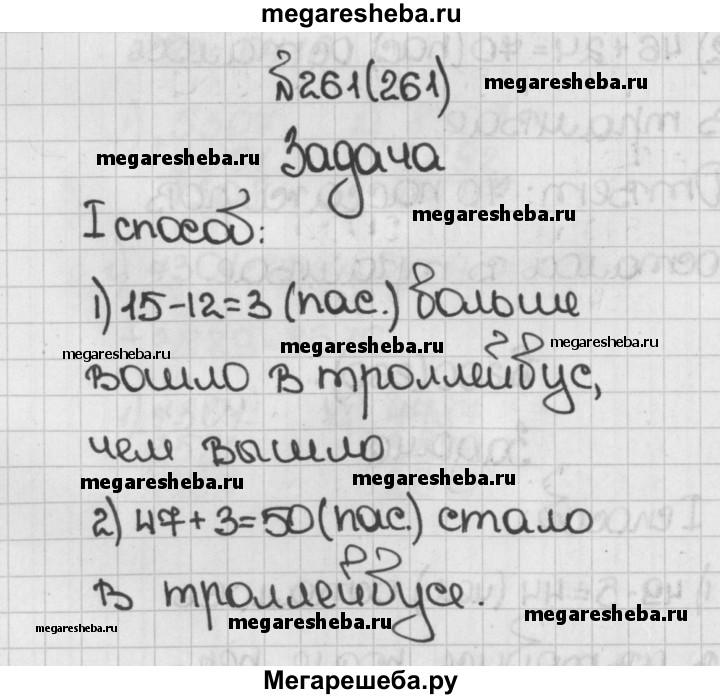 megaresheba.ru
№261(261)
megaresheba.ru
megaresheba.ru
Задача
megaresheba.ru
I способ:
1) 15-12=3 (пас.) больше
megaresheba.ru
megaresheba.ru
megaresheba.ru
вошло в троллейбус,
чем вышло
megaresheba.ru
megaresheba.ru
2) 47+3=50(пас.) стало
в троллейбусе.
megaresheba.ru
megaresheba.ru
megaresheba.ru
Мегарешеба.ру